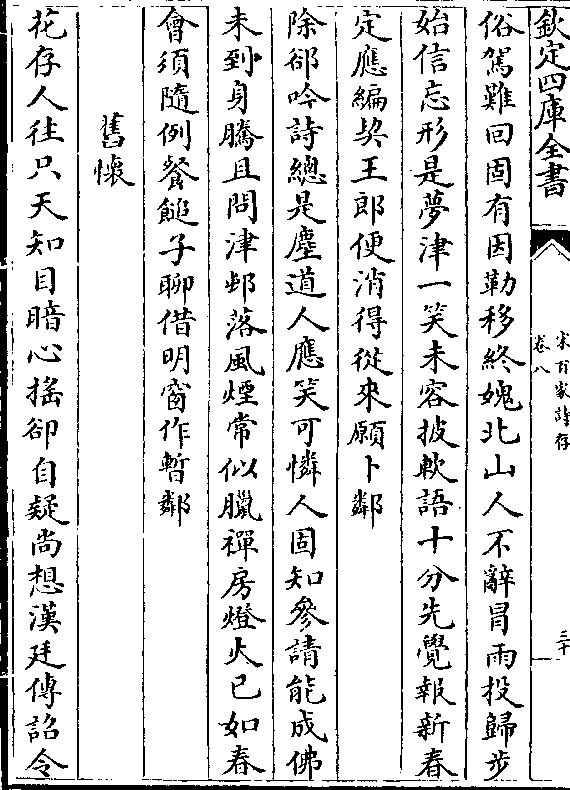 欽定四庫全書
宋百家詩存
卷八
三十
俗駕雖回固有因勒移終媿北山人不辭冒雨投歸步
始信忘形是夢津一笑未容披軟語十分先覺報新春
定應編契王郎便消得從來願卜鄰
除郤吟詩總是塵道人應笑可憐人固知參請能成佛
未到身騰且問津邨落風煙常似臘禪房燈火已如春
會須隨例餐䭔子聊借明窗作暫鄰
舊懷
花存人往只天知目暗心搖卻自疑尚想漢廷傳詔令